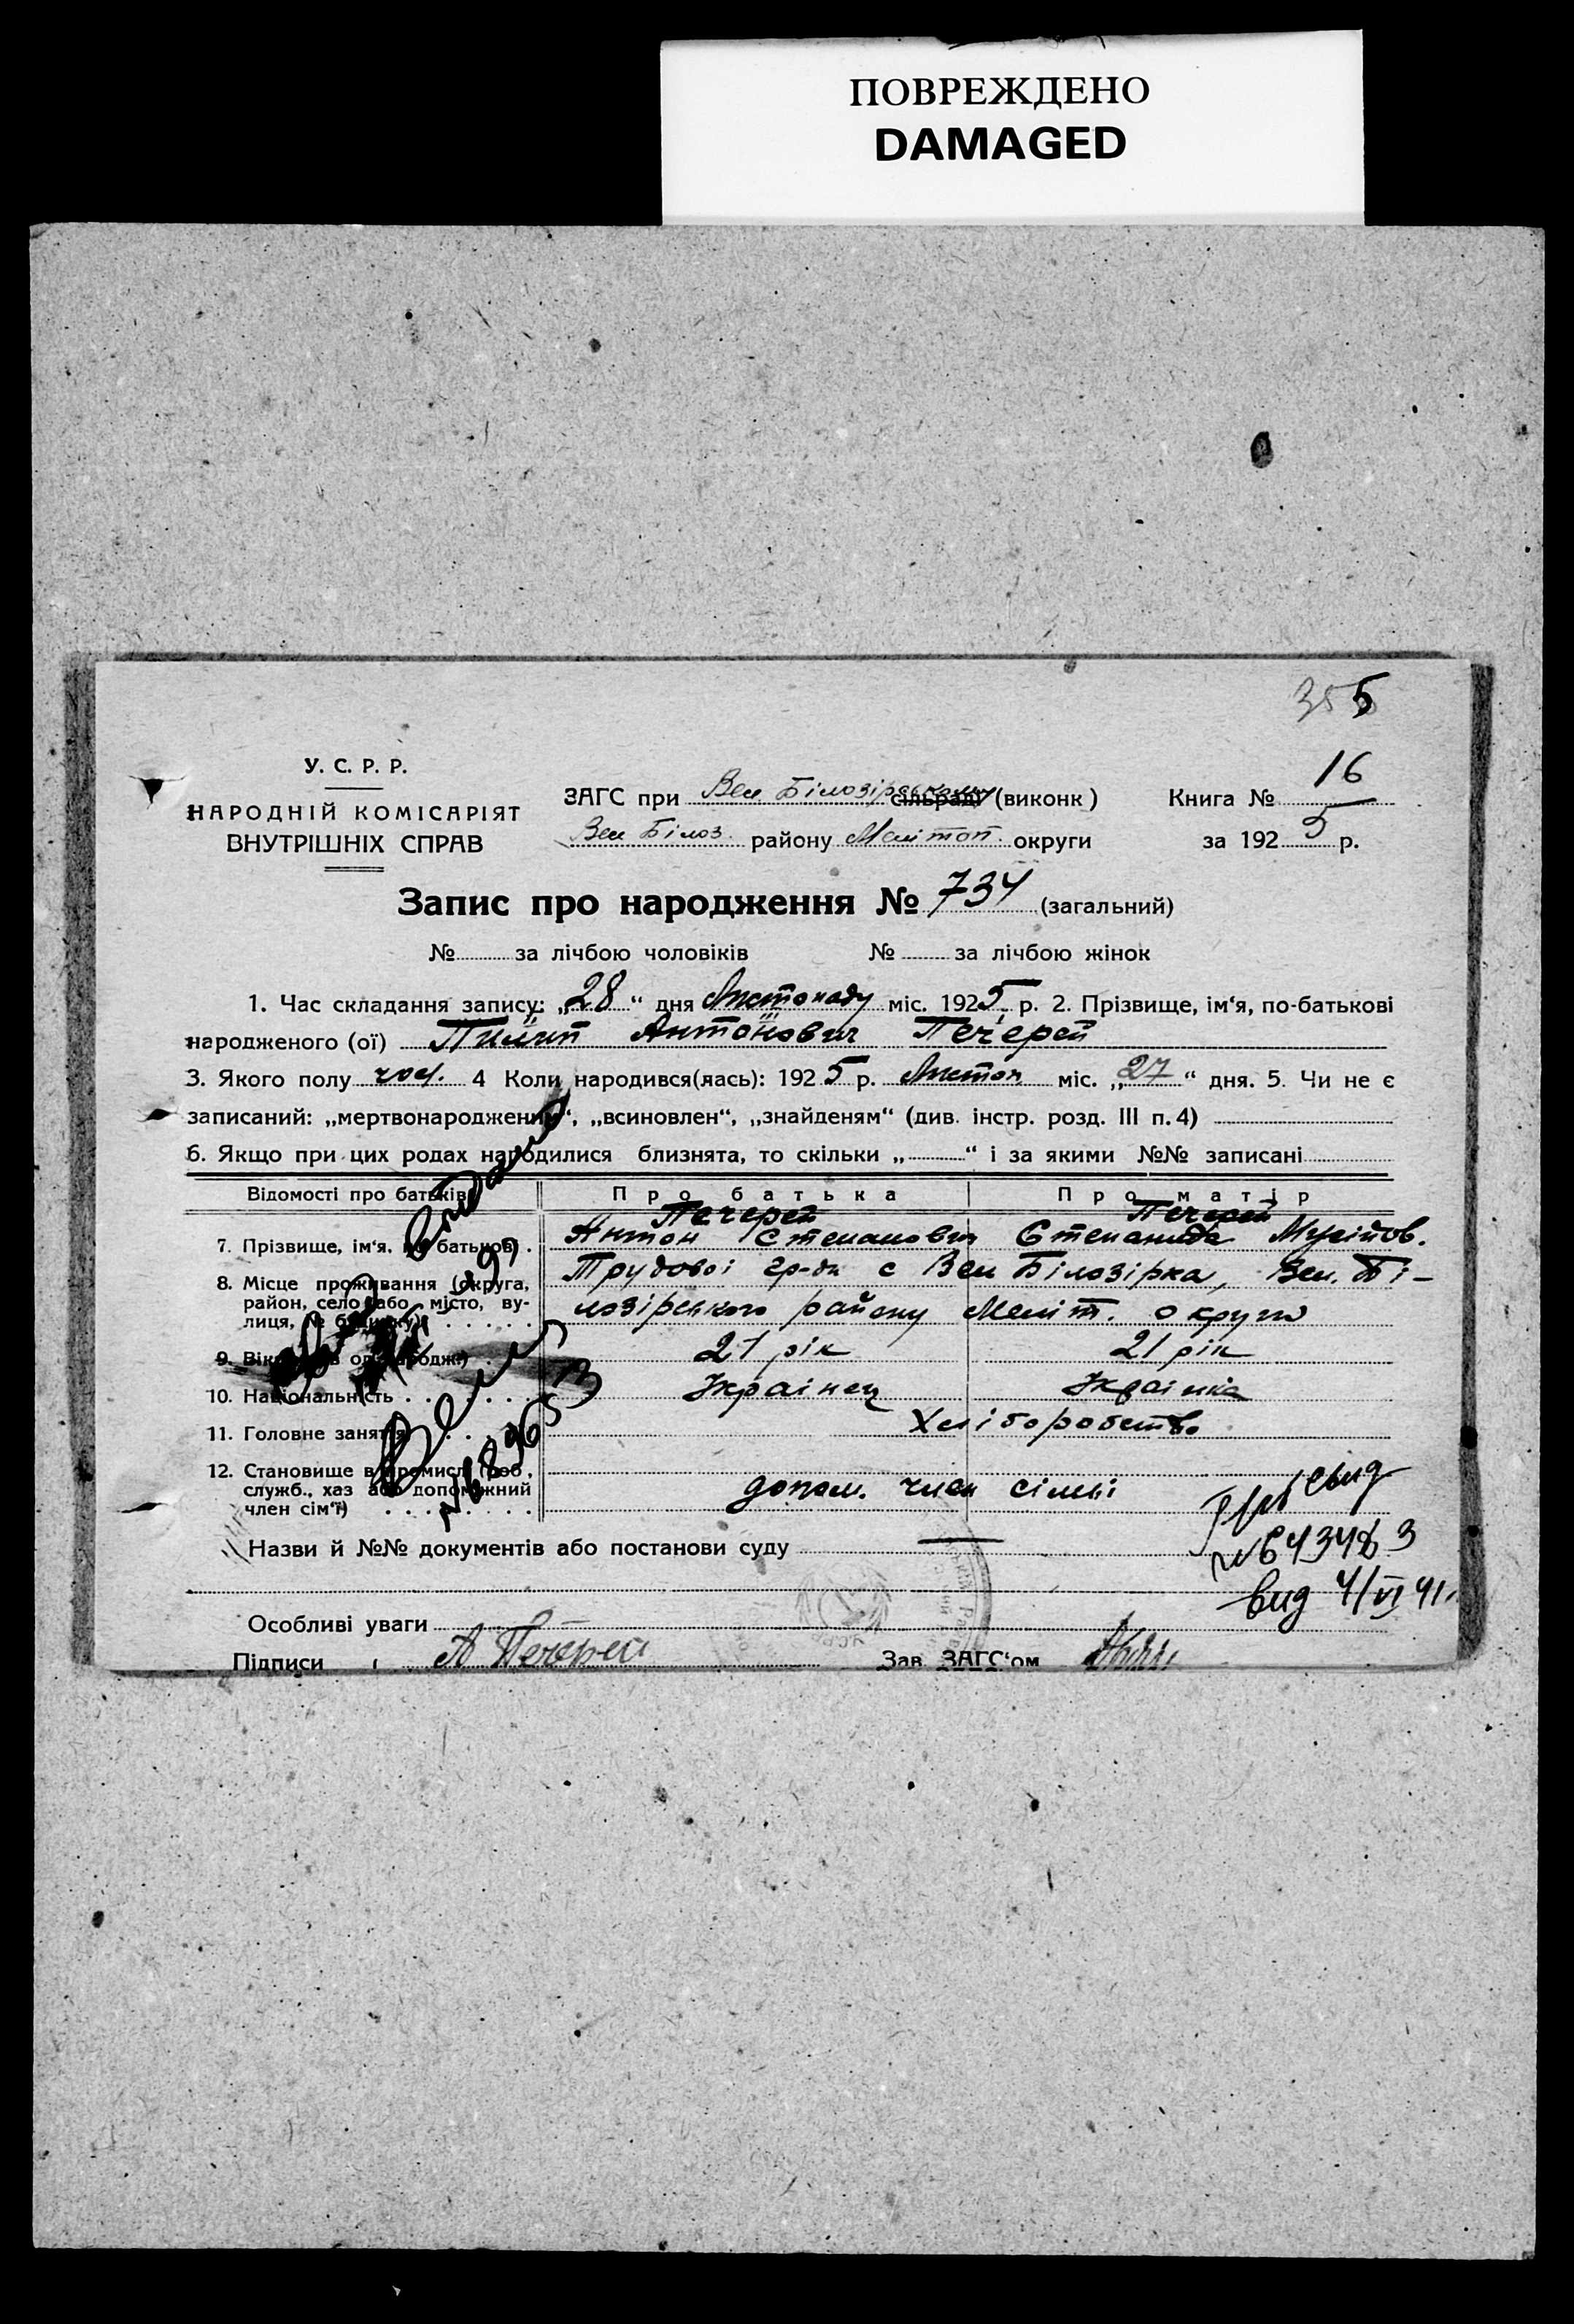 ПОВРЕЖДЕНО
DAMAGED
355
У. С. Р. Р.
НАРОДНІЙ КОМІСАРІЯТ
ВНУТРІШНІХ СПРАВ
ЗАГС при Вел. Білозірському сільраді (виконк)
Вел Білоз. району Меліт оп. округи
Книга № 16
за 1925 р.
Запис про народження № 734 (загальний)
№ за лічбою чоловіків № за лічбою жінок
1. Час складання запису: „28“ дня Листопаду міс. 1925 р. 2. Прізвище, ім‘я, по-батькові
народженого (ої) Пилип Антонович Печерей
3. Якого полу чол. 4 Коли народився(лась): 1925 р. Листоп міс. „27“ дня. 5. Чи не є
записаний: „мертвонародженим“, „всиновлен“, „знайденям“ (див. інстр. розд. III п. 4)
6. Якщо при цих родах народилися близнята, то скільки „ “ і за якими №№ записані
Відомості про батьків Про батька Про матір
Печерей Печерей
7. Прізвище, ім‘я, по батькові Антон Степанович Степанида Мусійов.
8. Місце проживання (округа, район, село або місто, вулиця, № будинку) Трудові гр-ни с Вел Білозірка, Вел. Бі-
лозірського району Меліт. округи
9. Вік 21 рік 21 рік
10. Національність Українец Українка
11. Головне заняття Хліборобство
12. Становище в промислі (роб., служб., хаз або допоміжний член сім‘ї) допом. член сімьі
Назви й №№ документів або постанови суду
№ 643483
вид 4/VI 41
Особливі уваги
Підписи А Печерей Зав ЗАГС‘ом